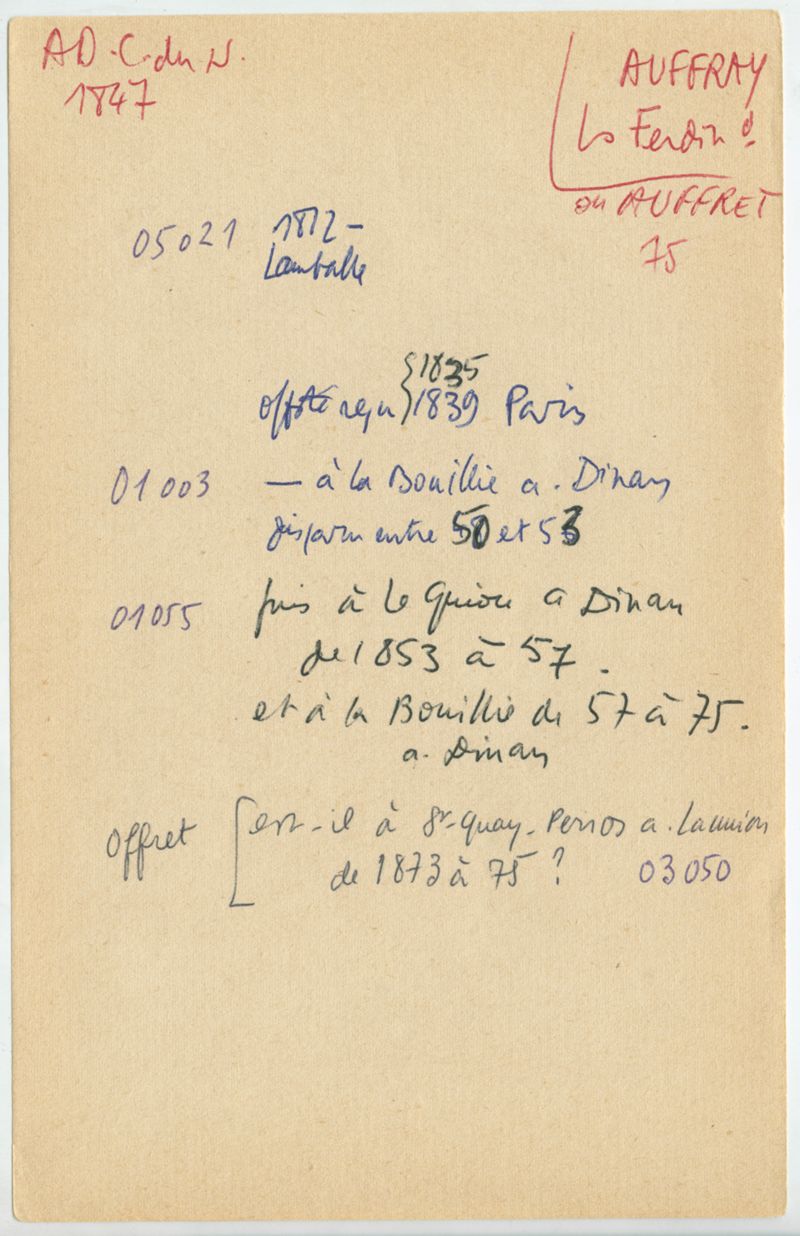 AD. C. du N.
1847
AUFFRAY
Ls Ferdind
ou AUFFRET
75
05021 1812 -
Lamballe
1835
off té reçu 1839 Paris
01003 — à la Bouillie a. Dinan
entre 50 et 53
01055 puis à Le Quiou a Dinan
de 1853 à 57.
et à la Bouillie de 57 à 75.
a. Dinan
Offret [est-il à St-Quay-Perros a. Lannion
de 1873 à 75 ? 03050